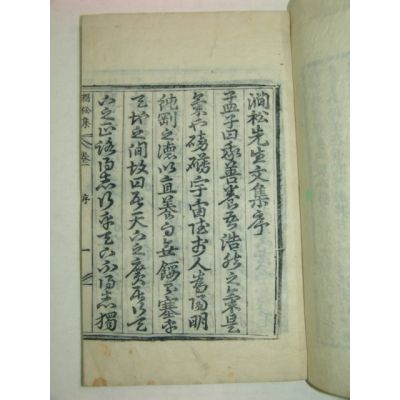 澗松先生文集序
孟子曰我善養吾浩然之氣是
氣也磅礴宇宙於人爲陽明
純剛之德以直養而無餒塞乎
天地之間故曰居天下之廣居行天
下之正路得志行乎天下不得志獨
澗松集 卷 序 一